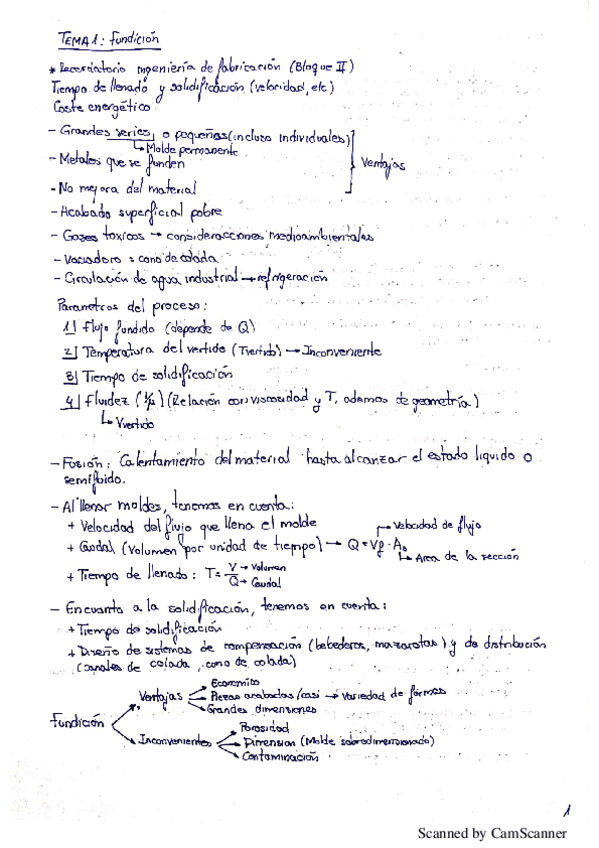 TEMA 1: Fundición
* Recordatorio ingeniería de fabricación (Bloque II)
Tiempo de llenado y solidificación (velocidad, etc)
Coste energético
- Grandes series, o pequeñas (incluso individuales)
↳ Molde permanente
- Metales que se funden
Ventajas
- No mejora del material
- Acabado superficial pobre
- Gases toxicos → consideracciones medioambientales
- Vaciadero = cono de colada
- Circulación de agua industrial → refrigeración
Parametros del proceso:
1) Flujo fundido (depende de Q)
2) Temperatura del vertido (Tvertido) → Inconveniente
3) Tiempo de solidificación
4) Fluidez (1/μ) (Relación con viscosidad y T, ademas de geometría)
↳ Vvertido
- Fusión: Calentamiento del material hasta alcanzar el estado liquido o
semifluido.
- Al llenar moldes, tenemos en cuenta:
+ Velocidad del flujo que llena el molde
→ Velocidad de flujo
+ Caudal (Volumen por unidad de tiempo) → Q = Vf · A
↳ Area de la sección
+ Tiempo de llenado: T = V/Q → Volumen → Caudal
- En cuanto a la solidificación, tenemos en cuenta:
+ Tiempo de solidificación
+ Diseño de sistemas de compensación (bebederos, mazarotas) y de distribución
(canales de colada, cono de colada)
Economico
Ventajas → Piezas acabadas/casi → Variedad de formas
Grandes dimensiones
Fundición
Porosidad
Inconvenientes → Dimension (Molde sobredimensionado)
Contaminación
1
Scanned by CamScanner